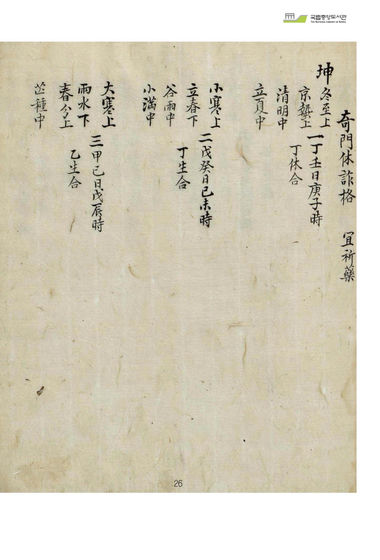 국립중앙도서관
奇門休詐格 宜祈藥
坤
冬至上
京蟄上
淸明中
立夏中
一丁壬日庚子時
丁休合
小寒上
立春下
谷雨中
小滿中
二戊癸日己未時
丁生合
大寒上
雨水下
春分上
芒種中
三甲己日戊辰時
乙生合
26